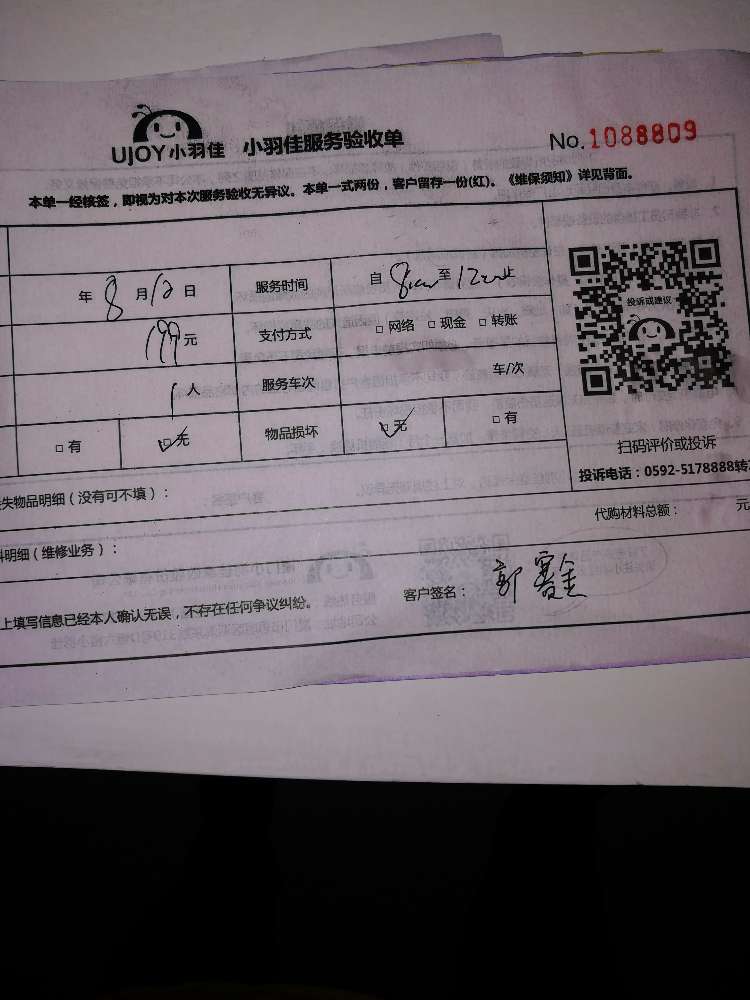 UJOY小羽佳 小羽佳服务验收单 No.1088809
本单一经核签，即视为对本次服务验收无异议。本单一式两份，客户留存一份(红)。《维保须知》详见背面。
年8月12日 服务时间 自8:00至12:00止
199元 支付方式 □网络 □现金 □转账
1人 服务车次 车/次
投诉或建议
□有 □无 物品损坏 □无 □有
扫码评价或投诉
投诉电话：0592-5178888转
失物品明细（没有可不填）：
代购材料总额： 元
料明细（维修业务）：
上填写信息已经本人确认无误，不存在任何争议纠纷。 客户签名：郭